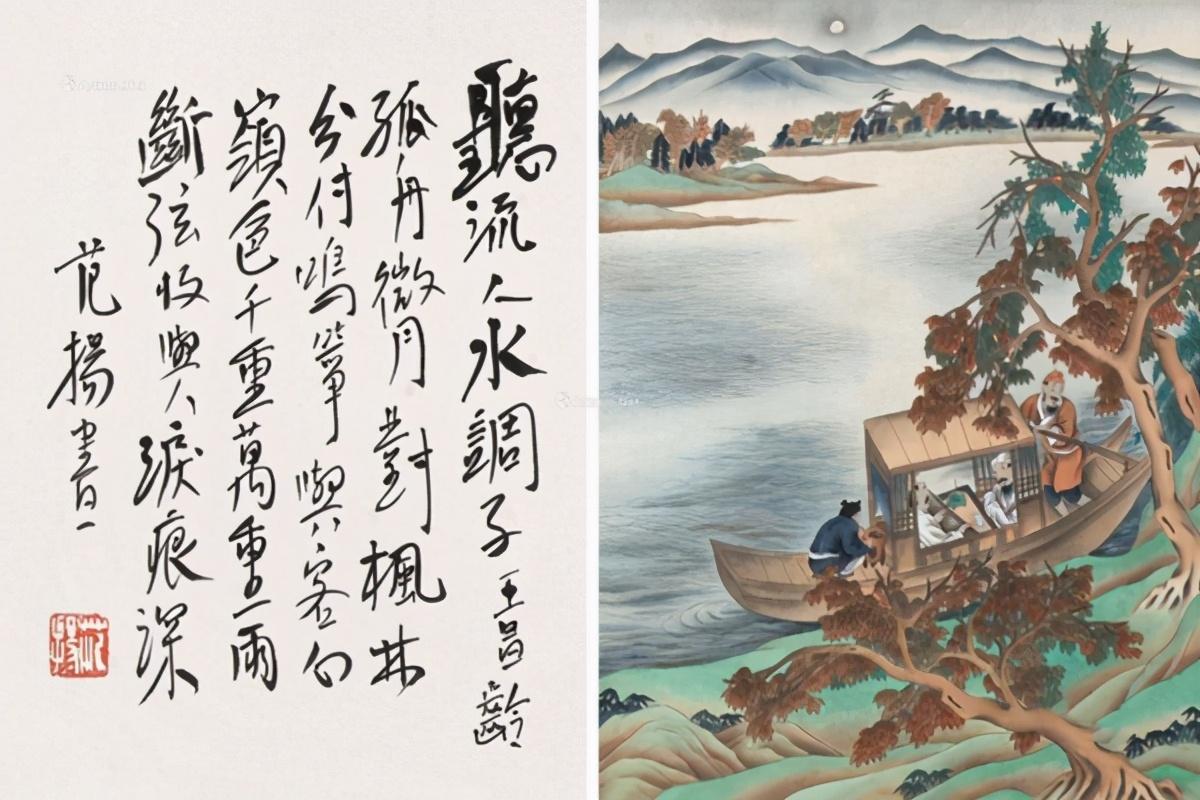 聽流人水調子 王昌齡
孤舟微月對楓林
分付鳴箏與客心
嶺色千重萬重雨
斷弦收與淚痕深
范揚書